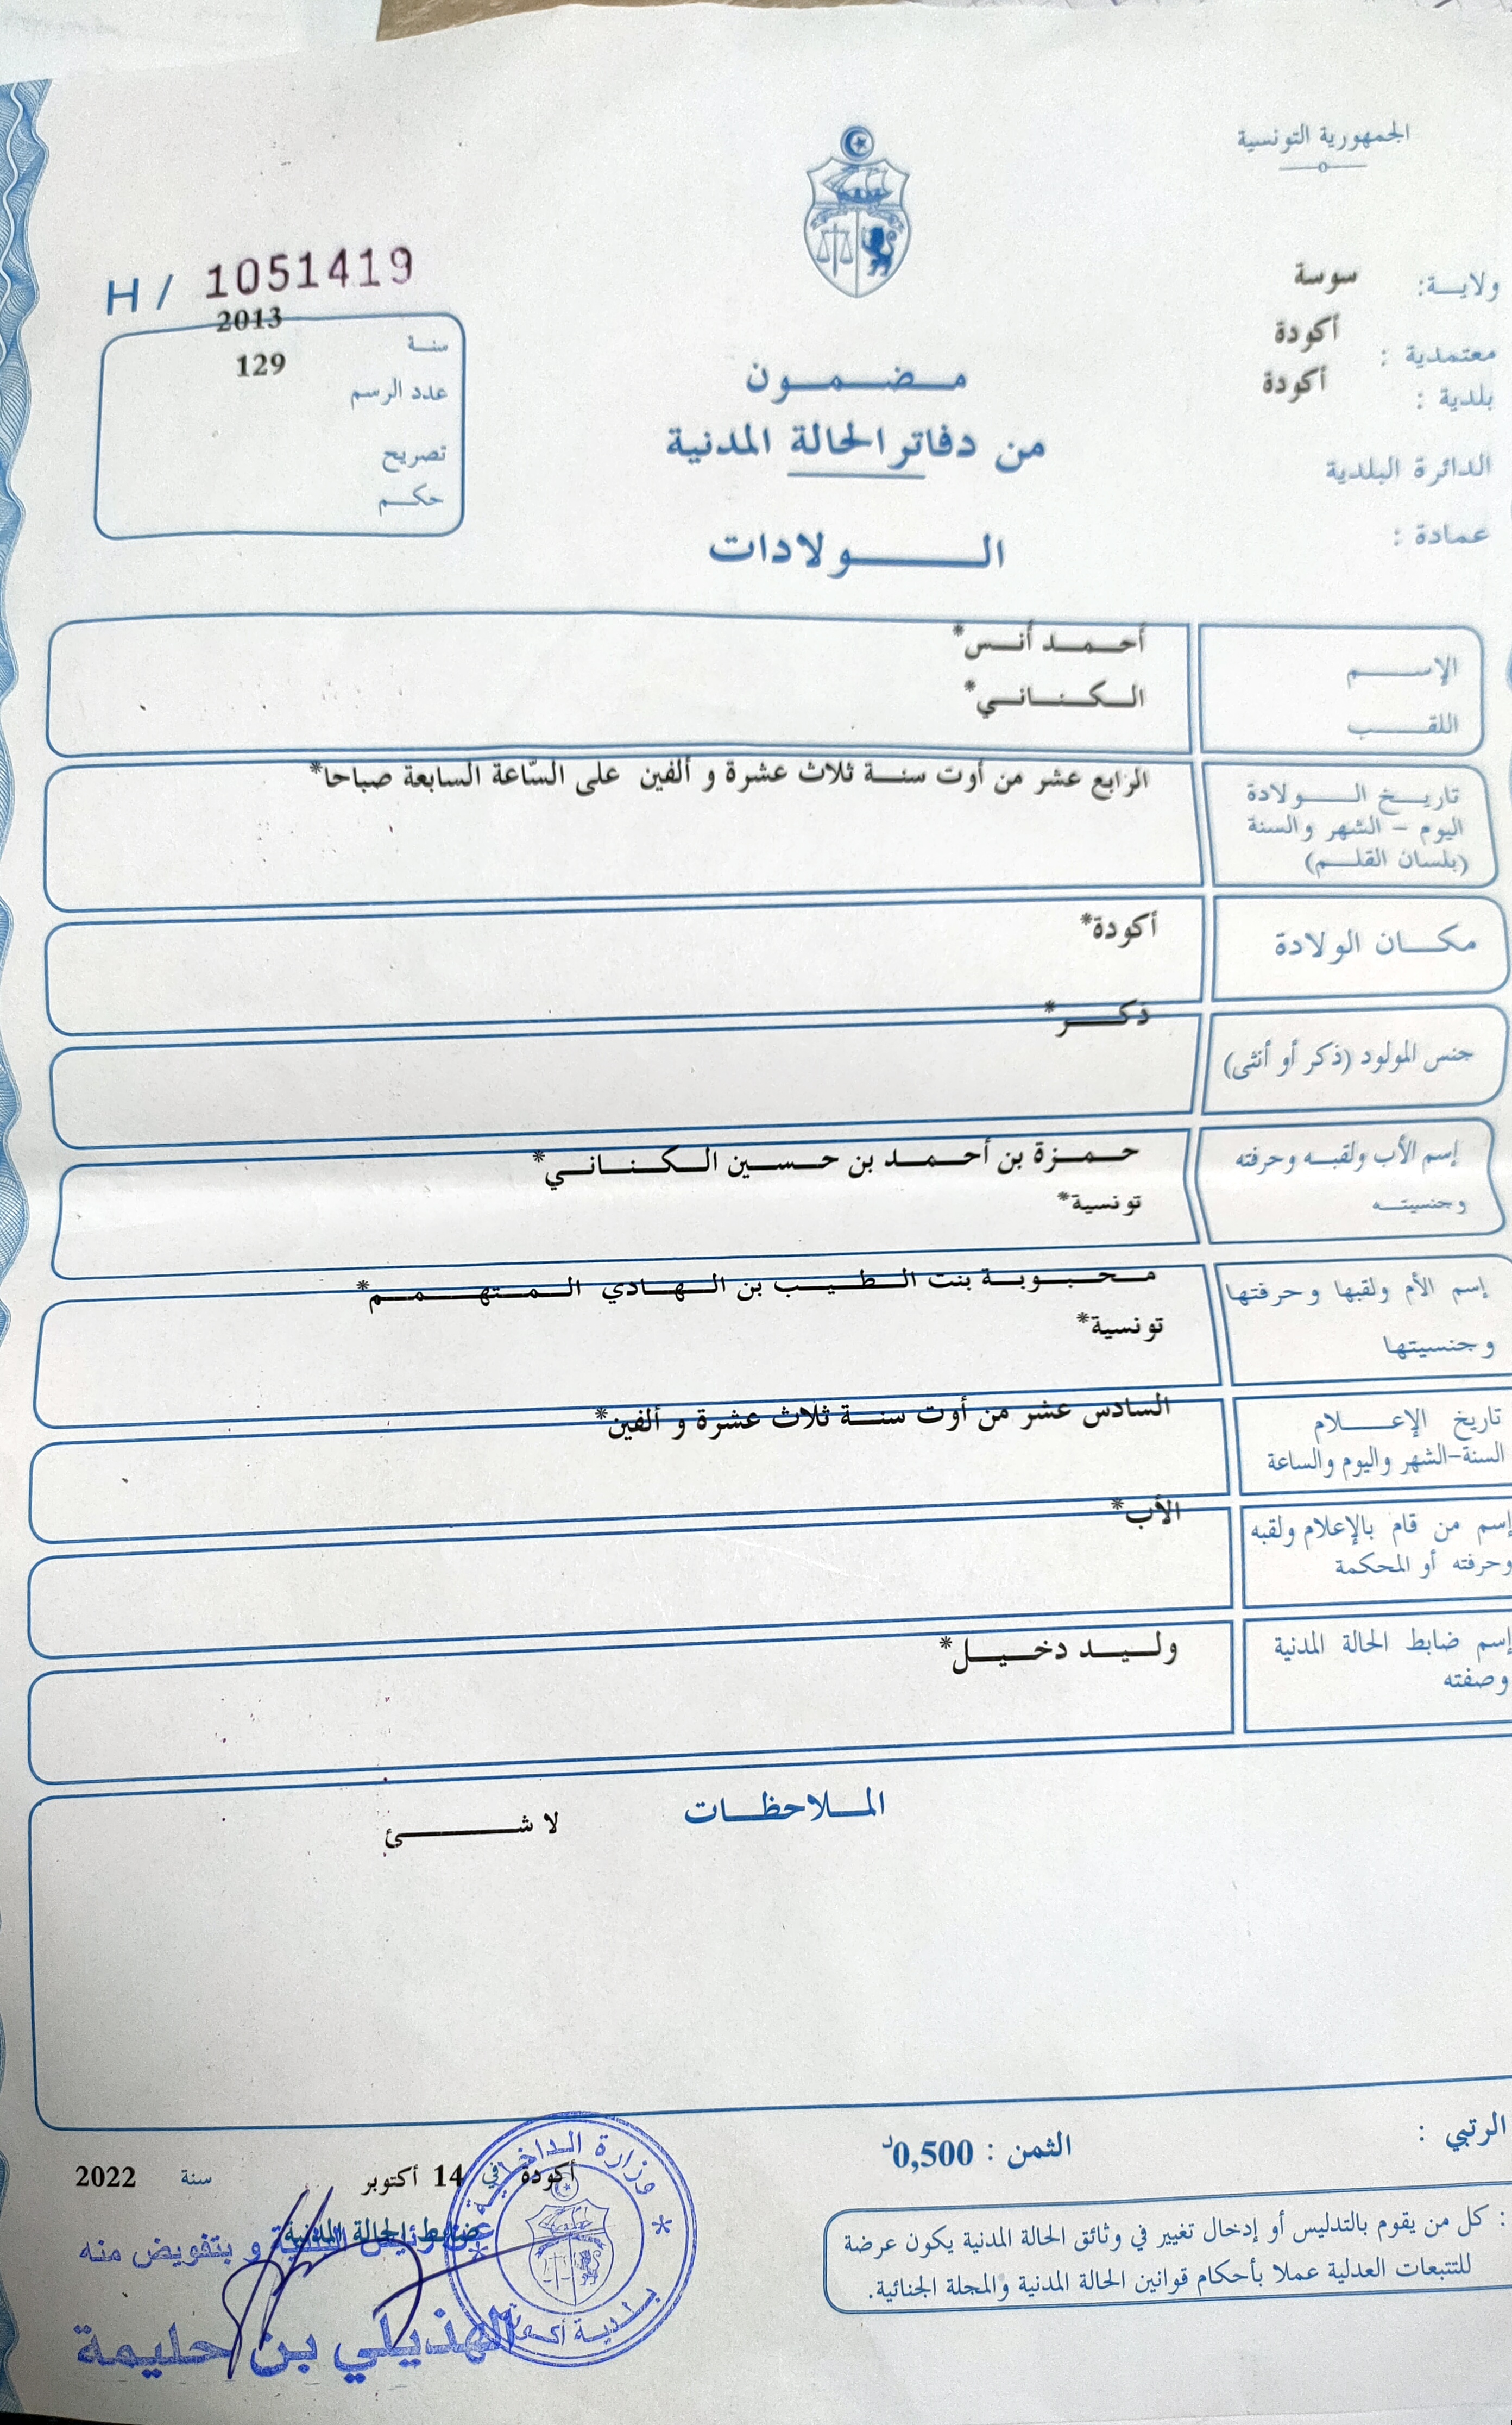 الجمهورية التونسية
ولايـة: سوسة
معتمدية : أكودة
بلدية : أكودة
الدائرة البلدية
عمادة :
H / 1051419
سنـة 2013
عدد الرسم 129
تصريح
حكـم
مـضـمـون
من دفاتر الحالة المدنية
الـولادات
الإسـم أحـمـد أنـس*
اللقـب الـكـنـانـي*
تاريـخ الـولادة
اليوم - الشهر والسنة
(بلسان القلـم)
الرابع عشر من أوت سنـة ثلاث عشرة و ألفين على السّاعة السابعة صباحا*
مكـان الولادة أكودة*
جنس المولود (ذكر أو أنثى) ذكـر*
إسم الأب ولقبـه وحرفته حـمـزة بن أحـمـد بن حـسـين الـكـنـانـي*
وجنسيتـه تونسية*
إسم الأم ولقبها وحرفتها محـبـوبـة بنت الـطـيـب بن الـهـادي الـمـتـهـمـم*
وجنسيتها تونسية*
تاريخ الإعـلام
السنة-الشهر واليوم والساعة
السادس عشر من أوت سنـة ثلاث عشرة و ألفين*
إسم من قام بالإعلام ولقبه
وحرفته أو المحكمة
الأب*
إسم ضابط الحالة المدنية
وصفته
ولـيـد دخـيـل*
المـلاحظـات
لا شـئ
الرتبي :
الثمن : 0,500د
: كل من يقوم بالتدليس أو إدخال تغيير في وثائق الحالة المدنية يكون عرضة
للتتبعات العدلية عملا بأحكام قوانين الحالة المدنية والمجلة الجنائية.
أكودة في 14 أكتوبر سنة 2022
ضابط الحالة المدنية
و بتفويض منه
الهذيلي بن حليمة
وزارة الداخلية
بلدية أكودة